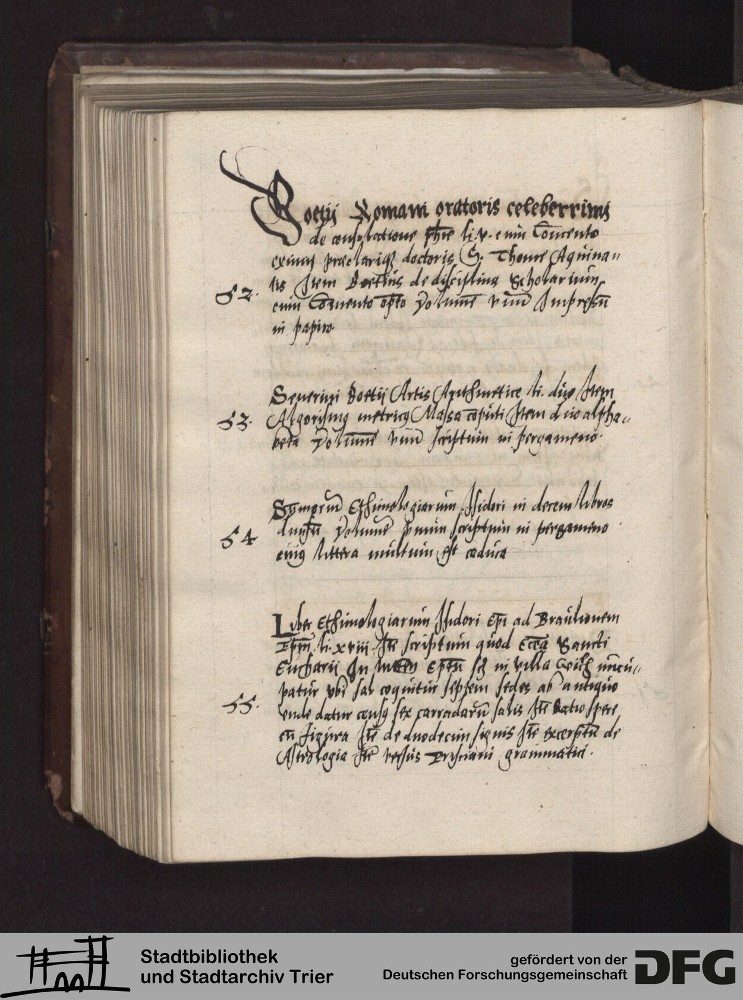 Boetij Romani oratoris celeberrimi
de consolatione phie li. v. cum Commento
eximij praeclariqz doctoris S. Thome Aquina=
52. tis Item Boetius de disciplina Scholarium
cum Comento opto Volume vnu Impressu
in papiro
Seuerini Boetij Artis Arithmetice li. duo Item
53. Algorismq metricq Massa coputi Item duo alpha=
beta Volume vnu scriptum in pergameno.
Ethimologiarum Isidori in decem libros
54 Volume scriptum in pergameno
cuiq littera multum est caduca
Liber Ethimologiarum Isidori Epi ad Braulionem
Epm li. xviij. Ite scriptum quod Ecca Sancti
Eucharij in villa nucu=
patur vbi sal coquitur septem sedes ab antiquo
55. vnde datur censq sex carradaru salis Ite Ratio spere
cu figura Ite de duodecim signis Ite excerptu de
Astrologia Ite versus Prisciani grammatici.
Stadtbibliothek
und Stadtarchiv Trier
gefördert von der
Deutschen Forschungsgemeinschaft
DFG